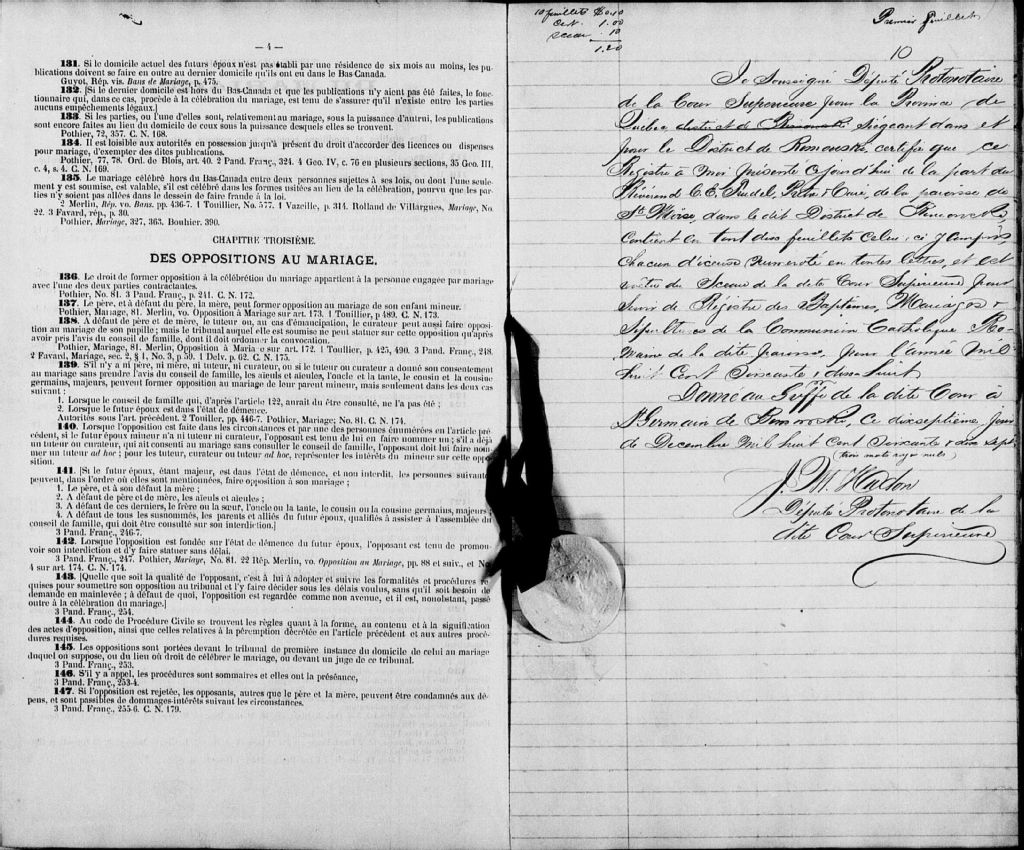 — 4 —
131. Si le domicile actuel des futurs époux n'est pas établi par une résidence de six mois au moins, les pu-
blications doivent se faire en outre au dernier domicile qu'ils ont eu dans le Bas-Canada.
Guyot, Rép. vis. Bans de Mariage, p. 475.
132. [Si le dernier domicile est hors du Bas-Canada et que les publications n'y aient pas été faites, le fonc-
tionnaire qui, dans ce cas, procède à la célébration du mariage, est tenu de s'assurer qu'il n'existe entre les parties
aucuns empêchements légaux.]
133. Si les parties, ou l'une d'elles sont, relativement au mariage, sous la puissance d'autrui, les publications
sont encore faites au lieu du domicile de ceux sous la puissance desquels elles se trouvent.
Pothier, 72, 357. C. N. 168.
134. Il est loisible aux autorités en possession jusqu'à présent du droit d'accorder des licences ou dispenses
pour mariage, d'exempter des dites publications.
Pothier, 77, 78. Ord. de Blois, art. 40. 2 Pand. Franç., 324. 4 Geo. IV, c. 76 en plusieurs sections, 35 Geo. III,
c. 4, s. 4. C. N. 169.
135. Le mariage célébré hors du Bas-Canada entre deux personnes sujettes à ses lois, ou dont l'une seule-
ment y est soumise, est valable, s'il est célébré dans les formes usitées au lieu de la célébration, pourvu que les par-
ties n'y soient pas allées dans le dessein de faire fraude à la loi.
2 Merlin, Rép. vo. Bans. pp. 436-7. 1 Toullier, No. 577. 1 Vazeille, p. 314. Rolland de Villargues, Mariage, No.
22. 3 Favard, rép., p. 30.
Pothier, Mariage, 327, 363. Bouhier. 390.
CHAPITRE TROISIÉME.
DES OPPOSITIONS AU MARIAGE.
136. Le droit de former opposition à la célébrétion du mariage appartient à la personne engagée par mariage
avec l'une des deux parties contractantes.
Pothier, No. 81. 3 Pand. Franç., p. 241. C. N. 172.
137. Le père, et à défaut du père, la mère, peut former opposition au mariage de son enfant mineur.
Pothier, Mariage, 81. Merlin, vo. Opposition à Mariage sur art. 173. 1 Toullier, p 489. C. N. 173.
138. A défaut de père et de mère, le tuteur ou, au cas d'émancipation, le curateur peut aussi faire opposi-
tion au mariage de son pupille; mais le tribunal auquel elle est soumise ne peut statuer sur cette opposition qu'après
avoir pris l'avis du conseil de famille, dont il doit ordonner la convocation.
Pothier, Mariage, 81. Merlin, Opposition à Maria e sur art. 172. 1 Toullier, p. 425, 490. 3 Pand. Franç., 248.
2 Favard, Mariage, sec. 2, § 1, No. 3, p 59. 1 Delv. p. 62. C. N. 175.
139. S'il n'y a ni père, ni mère, ni tuteur, ni curateur, ou si le tuteur ou curateur a donné son consentement
au mariage sans prendre l'avis du conseil de famille, les aïeuls et aïeules, l'oncle et la tante, le cousin et la cousine
germains, majeurs, peuvent former opposition au mariage de leur parent mineur, mais seulement dans les deux cas
suivant :
1. Lorsque le conseil de famille qui, d'après l'article 122, aurait du être consulté, ne l'a pas été ;
2. Lorsque le futur époux est dans l'état de démence.
Autorités sous l'art. précédent. 2 Touiller, pp. 446-7. Pothier, Mariage; No. 81. C. N. 174.
140. Lorsque l'opposition est faite dans les circonstances et par une des personnes énumérées en l'article pré-
cédent, si le futur époux mineur n'a ni tuteur ni curateur, l'opposant est tenu de lui en faire nommer un ; s'il a déjà
un tuteur ou curateur, qui ait consenti au mariage sans consulter le conseil de famille, l'opposant doit lui faire nom-
mer un tuteur ad hoc ; pour les tuteur, curateur ou tuteur ad hoc, représenter les intérêts du mineur sur cette oppo-
sition.
141. [Si le futur époux, étant majeur, est dans l'état de démence, et non interdit, les personnes suivantes
peuvent, dans l'ordre où elles sont mentionnées, faire opposition à son mariage ;
1. Le père, et à son défaut la mère ;
2. A défaut de père et de mère, les aïeuls et aïeules ;
3. A défaut de ces derniers, le frère ou la sœur, l'oncle ou la tante, le cousin ou la cousine germains, majeurs ;
4. A défaut de tous les susnommés, les parents et alliés du futur époux, qualifiés à assister à l'assemblée du
conseil de famille, qui doit être consulté sur son interdiction.]
3 Pand. Franç., 246-7.
142. Lorsque l'opposition est fondée sur l'état de démence du futur époux, l'opposant est tenu de promou-
voir son interdiction et d'y faire statuer sans délai.
3 Pand. Franç., 247. Pothier, Mariage, No. 81. 22 Rép. Merlin, vo. Opposition au Mariage, pp. 88 et suiv., et No.
4 sur art. 174. C. N. 174.
143. [Quelque que soit la qualité de l'opposant, c'est à lui à adopter et suivre les formalités et procédures re-
quises pour soumettre son opposition au tribunal et l'y faire décider sous les délais voulus, sans qu'il soit besoin de
demande en mainlevée ; à défaut de quoi, l'opposition est regardée comme non avenue, et il est, nonobstant, passé
outre à la célébration du mariage.]
3 Pand. Franç., 254.
144. Au code de Procédure Civile se trouvent les règles quant à la forme, au contenu et à la signification
des actes d'opposition, ainsi que celles relatives à la péremption décrétée en l'article précédent et aux autres procé-
dures requises.
145. Les oppositions sont portées devant le tribunal de première instance du domicile de celui au mariage
duquel on suppose, ou du lieu où droit de célébrer le mariage, ou devant un juge de ce tribunal.
3 Pand. Franç., 253.
146. S'il y a appel, les procédures sont sommaires et elles ont la préséance,
3 Pand. Franç., 253-4.
147. Si l'opposition est rejetée, les opposants, autres que le père et la mère, peuvent être condamnés aux dé-
pens, et sont passibles de dommages-intérêts suivant les circonstances.
3 Pand. Franç., 255-6. C. N. 179.
10 feuillets $0.10
Cert. 1.00
sceau .10
1.20
Premier feuillet
10
Je Soussigné Député Protonotaire
de la Cour Superieure pour la Province de
Québec district de Rimouski siégeant dans et
pour le District de Rimouski, certifie que ce
Régistre à moi présenté ce jourd'hui de la part du
Révérend C. E. Trudel, Ptre Curé, de la paroisse de
St Moïse, dans le dit District de Rimouski,
contient en tout dix feuillets celui-ci y compris,
chacun d'iceux numeroté en toutes lettres, et est
revêtu du Sceau de la dite Cour Supérieure pour
servir de Régistre des Baptêmes, Mariages &
Sépultures de la Communion Catholique Ro-
maine de la dite paroisse, pour l'année Mil
huit Cent Soixante & dix huit
Donné au Greffe de la dite Cour à
St Germain de Rimouski, ce dixseptième, jour
de Decembre Mil huit Cent Soixante & dix sept
(trois mots rayés nuls)
J. M. Hudon
Député Protonotaire de la
dite Cour Superieure